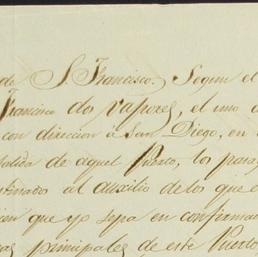 de S. Francisco. Segun el
Francisco dos vapores, el uno d
con direccion à San Diego, en
salida de aquel Puerto, los pasa
al auxilio de los que
cien que yo sepa en confirma
principales de este Puerto